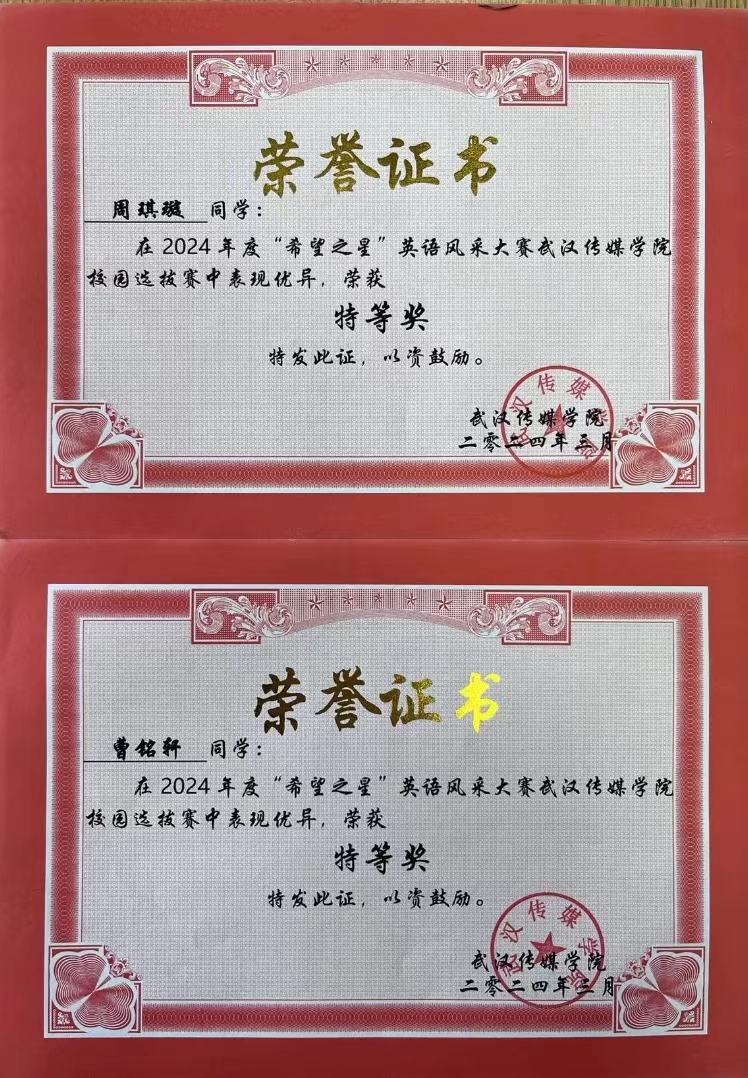 荣誉证书
周琪璇 同学：
在2024年度“希望之星”英语风采大赛武汉传媒学院
校园选拔赛中表现优异，荣获
特等奖
特发此证，以资鼓励。
武汉传媒学院
武汉传媒学院
二零二四年三月
荣誉证书
曹铭轩 同学：
在2024年度“希望之星”英语风采大赛武汉传媒学院
校园选拔赛中表现优异，荣获
特等奖
特发此证，以资鼓励。
武汉传媒学院
武汉传媒学院
二零二四年三月